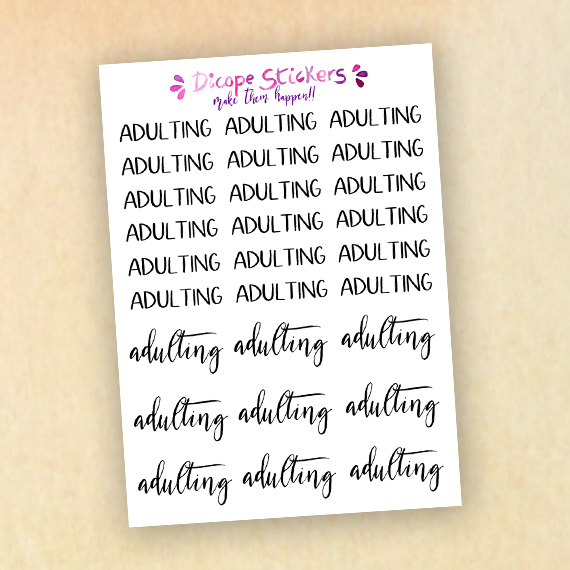 Dicope Stickers
make them happen!!
ADULTING ADULTING ADULTING
ADULTING ADULTING ADULTING
ADULTING ADULTING ADULTING
ADULTING ADULTING ADULTING
ADULTING ADULTING ADULTING
ADULTING ADULTING ADULTING
adulting adulting adulting
adulting adulting adulting
adulting adulting adulting